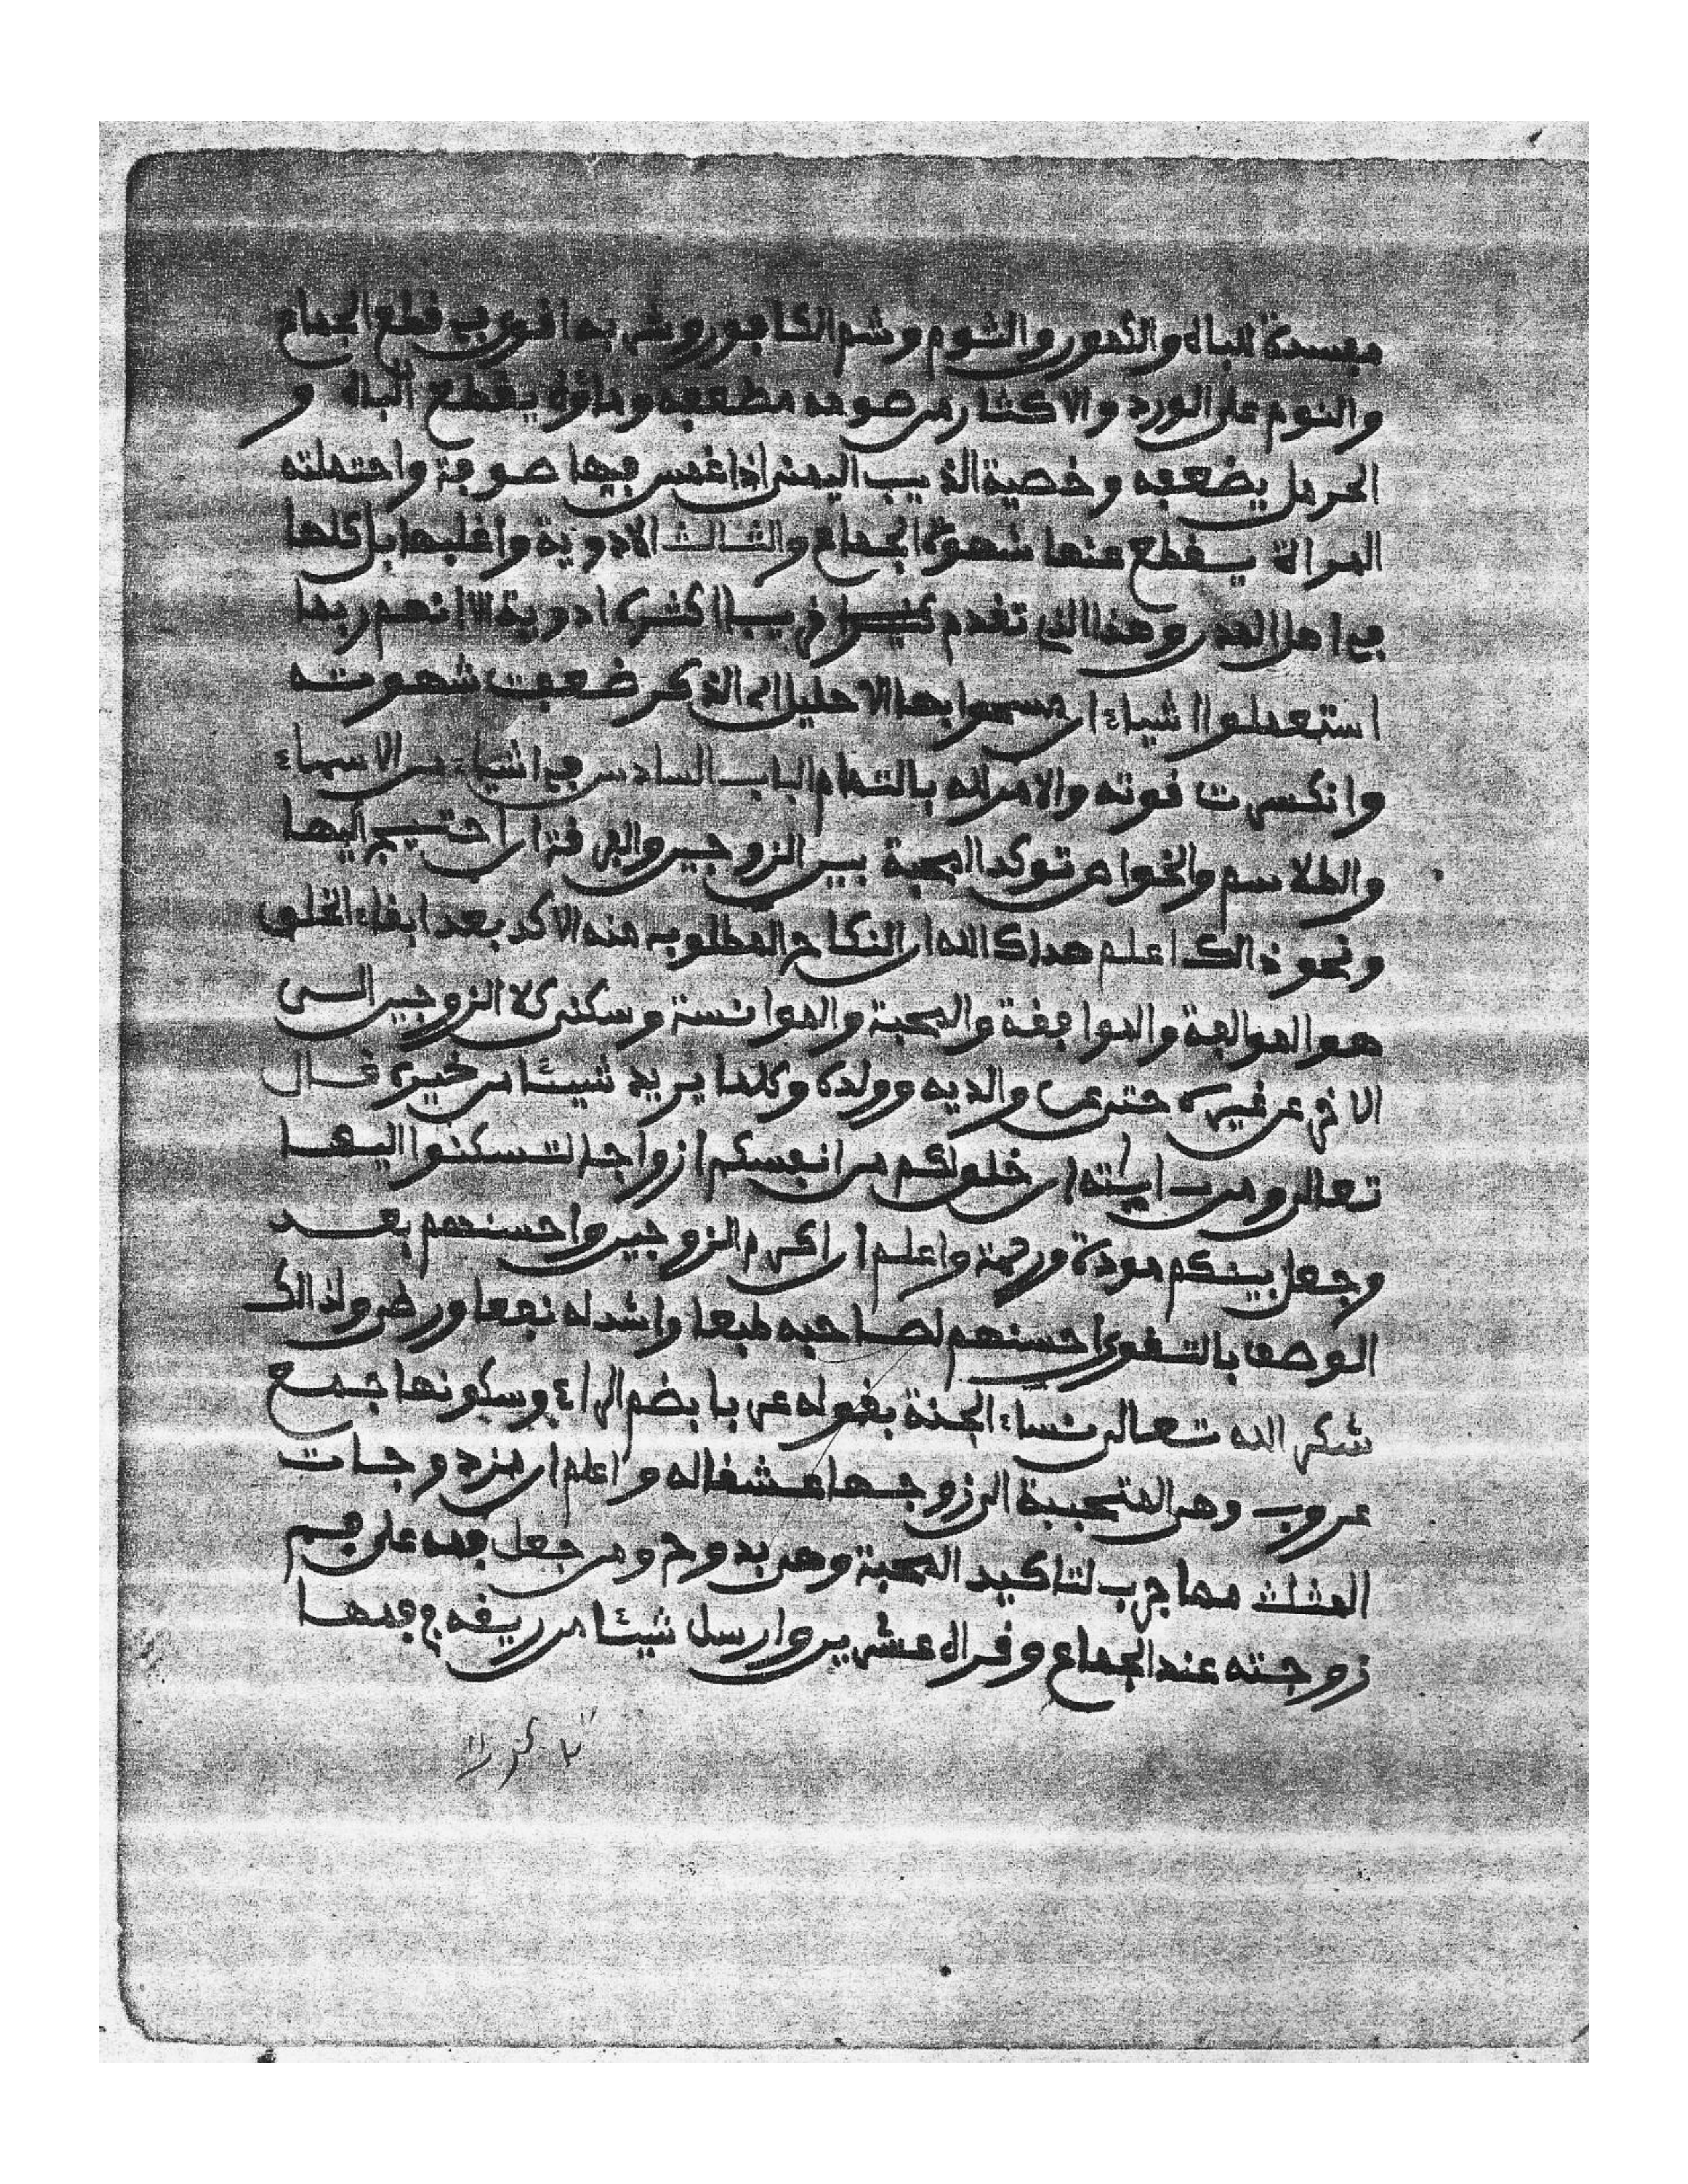 مفسدة للباه والكمور والثوم وشم الكافور وشربه اقوى ب قطع الجماع
والنوم على الورد والاكثار من صومه مضعفه وماؤه يقطع الباه و
الحرمل يضعفه وخصية الذيب اليمنى اذا غمس فيها صوفة واحتملته
المراة يقطع عنها شهوة الجماع والثالث الادوية واغلبها بل كلها
في اهل الهند وهذا الذي تقدم قريب اكثره ادوية الا انهم ربما
استعملوا اشياء ان مسحوا بها الاحليل اي الذكر ضعفت شهوته
وانكسرت قوته والامر لله بالتمام الباب السادس في اشياء من الاسماء
والطلاسم والخواص توكد المحبة بين الزوجين والفرقة ان احتيج اليها
ونحو ذالك اعلم هداك الله ان النكاح المطلوب منه الاكد بعد ابقاء الخلق
هو الموالفة والموافقة والمحبة والموانسة وسكنى كلا الزوجين الى
الاخر عن غيره حتى عن والديه وولده وكلما يريد شيئا من خيره قال
تعالى ومن ايته ان خلق لكم من انفسكم ازواجا لتسكنوا اليها
وجعل بينكم مودة ورحمة واعلم ان اكرم الزوجين واحسنهم بعد
الوصف بالتقوى احسنهم لصاحبه طبعا واشد له نفعا ورضى ولذالك
شكر الله تعالى نساء الجنة بقوله عربا بضم الراء وسكونها جمع
عروب وهي المتحببة الى زوجها عشقا له واعلم ان مزدوجات
المثلث مما جرب لتاكيد المحبة وهي بدوح ومن جعل فمه على فم
زوجته عند الجماع وقراه عشرين وارسل شيئا من ريقه في فمها